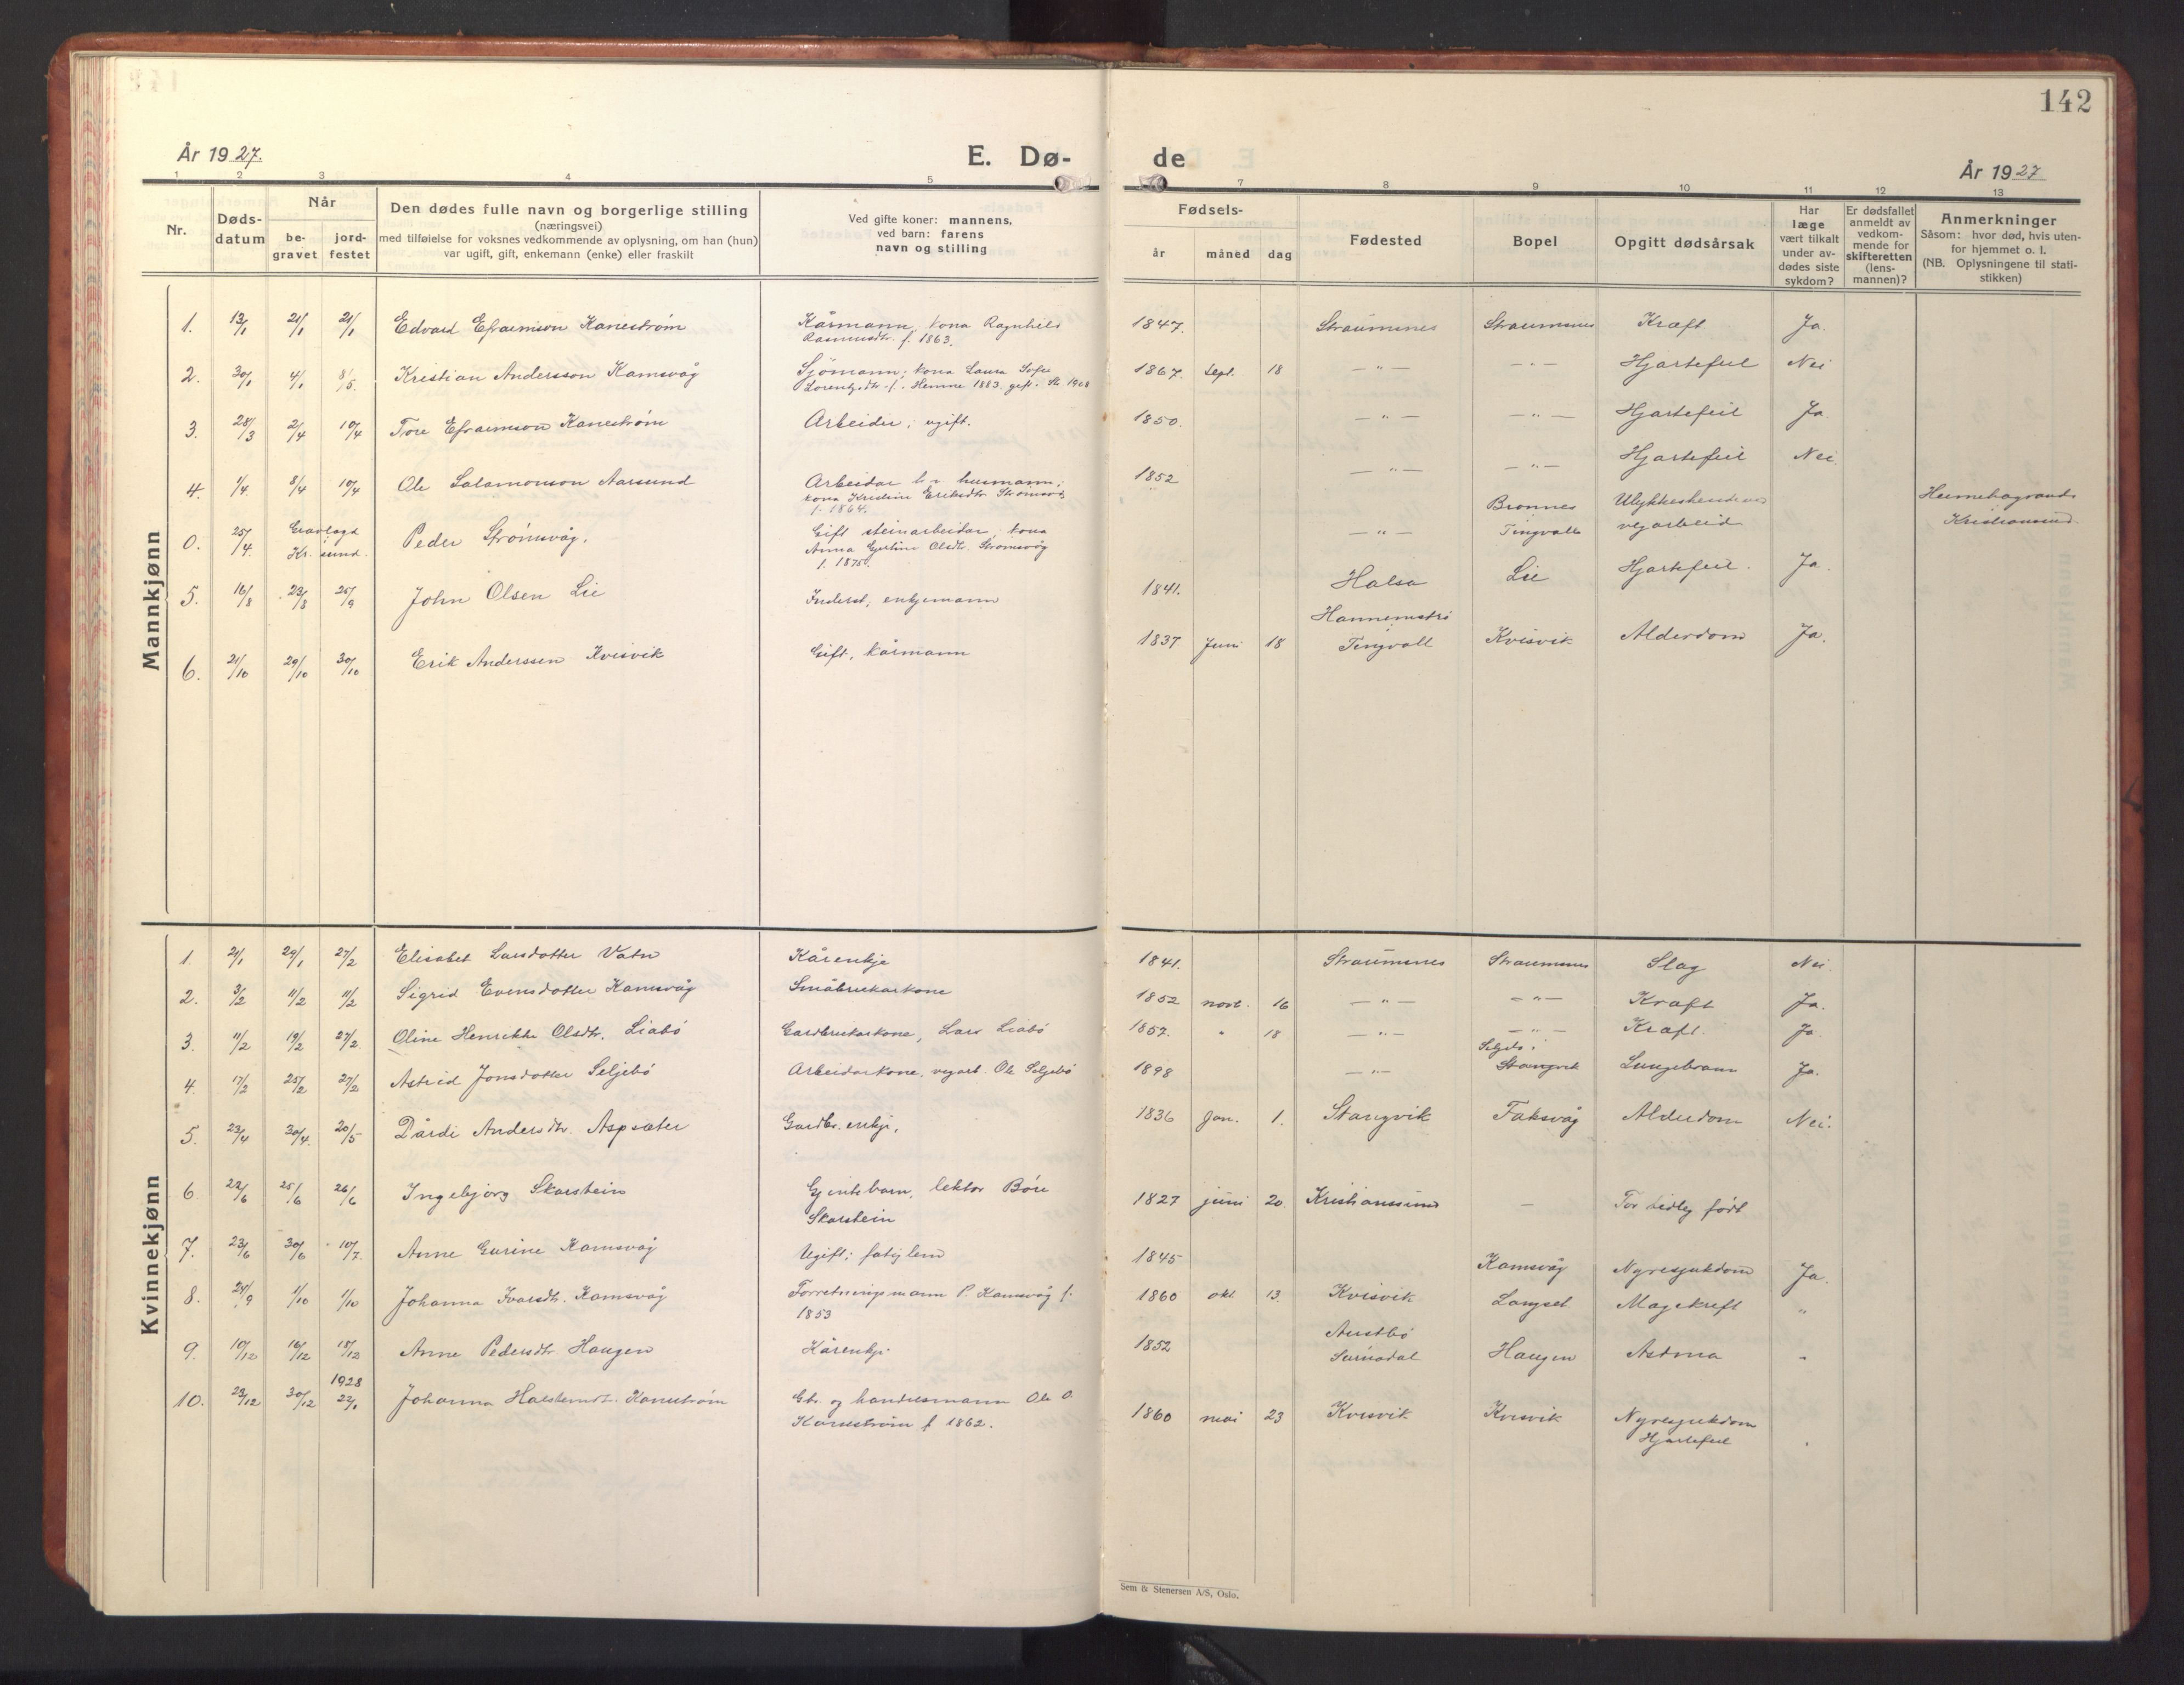 142
År 1927.
E. Dø-
de
År 1927
1 2 3 4 5 7 8 9 10 11 12 13
Nr.
Døds-
datum
Når
be-
gravet
jord-
festet
Den dødes fulle navn og borgerlige stilling
(næringsvei)
med tilføielse for voksnes vedkommende av oplysning, om han (hun)
var ugift, gift, enkemann (enke) eller fraskilt
Ved gifte koner: mannens,
ved barn: farens
navn og stilling
Fødsels-
år måned dag
Fødested
Bopel
Opgitt dødsårsak
Har
læge
vært tilkalt
under av-
dødes siste
sykdom?
Er dødsfallet
anmeldt av
vedkom-
mende for
skifteretten
(lens-
mannen)?
Anmerkninger
Såsom: hvor død, hvis uten-
for hjemmet o. l.
(NB. Oplysningene til stati-
stikken)
Mannkjønn
1. 13/1 21/1 21/1 Edvard Efraemson Kanestrøm Kårmann, kona Ragnhild 1847. Straumsnes Straumsnes Kræft Ja.
Rasmusdtr. f. 1863.
2. 30/1 4/1 8/5. Kristian Andersson Kamsvåg Sjömann; kona Laura Sofie 1867. Sept. 18 — " — — " — Hjartefeil Nei
Lorentzdtr. f. Hemne 1883. gift. 1908
3. 28/3 2/4 10/4 Tore Efraemson Kanestrøm Arbeider; ugift. 1850. — " — — " — Hjartefeil Ja
4. 1/4. 8/4 10/4 Ole Salamonson Aarsund Arbeidar husmann; 1852 — " — — " — Hjartefeil Nei.
kona Kristine Eriksdtr. Strømsvåg
f. 1864.
0. 25/4. Gravlagd Peder Strømsvåg, Gift steinarbeidar, kona — " — Bronnes Ulykkeshendenes
Kr. sund. Anna Gurtine Olsdtr. Strømsvåg Tingvoll vegarbeid Kristiansund
f. 1875.
5. 16/8 23/8 25/9 John Olsen Lie Inderst, enkjemann 1841. Halsa Lie Hjartefeil. Ja.
6. 21/10 29/10 30/10 Erik Anderssen Kvisvik Gift, kårmann 1837 Juni 18 Tingvoll Kvisvik Alderdom Ja.
Kvinnekjønn
1. 21/1 29/1 27/2 Elisabet Larsdotter Vatn Kårenkje 1841. Straumsnes Straumsnes Slag Nei.
2. 3/2 11/2 11/2 Sigrid Evensdotter Kamsvåg Småbrukarkone 1852 novb. 16 — " — — " — Kræft Ja.
3. 11/2 19/2 27/2. Oline Henrikke Olsdtr. Liabö Gardbrukarkone, Lars Liabö 1857. " 18 — " — — " — Kræft. Ja.
4. 17/2 25/2 27/2 Astrid Jonsdotter Seljebö Arbeidarkone, vegarb. Ole Seljebö 1898 — " — Stangvik Lungebrann Ja.
5. 23/4 30/4. 20/5 Dårdi Andersdtr. Aspsæter Gardbr. enkje, 1836 Jan. 1. Stangvik Taksvåg Alderdom Nei.
6. 22/6 25/6 26/6 Ingebjörg Skarstein Gjentebarn, lektor Böre 1827 juni 20. Kristiansund — For tidleg født
Skarstein
7. 23/6 30/6 10/7. Anne Gurine Kamsvåg Ugift; fatiglem 1845 Kamsvåg Nyresjukdom Ja.
8. 24/9 1/10 1/10 Johanna Ivarsdtr. Kamsvåg Forretningsmann P. Kamsvåg f. 1860 okt. 13. Kvisvik Langset Magekreft "
1853
9. 10/12 16/12 18/12 Anne Pedersdtr Haugen Kårenkje. 1852 Austbö
Surnadal Haugen Astma "
1928
10. 23/12 30/12 22/1 Johanna Halstensdtr. Kanestrøm Gb. og handelsmann Ole O. 1860 mai 23 Kvisvik Kvisvik Nyresjukdom
Kanestrøm f. 1862. Hjartefeil
Sem & Stenersen A/S, Oslo.